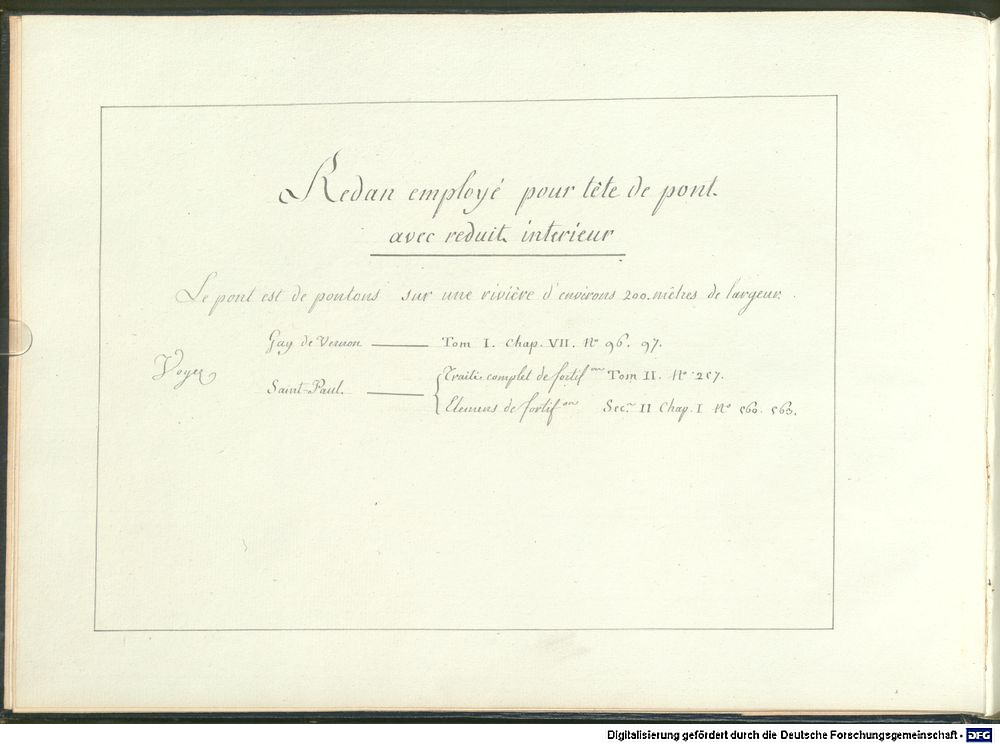 Redan employé pour tête de pont
avec reduit interieur
Le pont est de pontons sur une rivière d'environs 200. mètres de largeur.
Gay de Vernon —— Tom I. Chap. VII. No 96. 97.
Voyez
Saint-Paul. ——
Traité complet de fortif.on Tom II. No 257.
Elemens de fortif.on Sec.n II Chap. I No 560. 563.
Digitalisierung gefördert durch die Deutsche Forschungsgemeinschaft - DFG